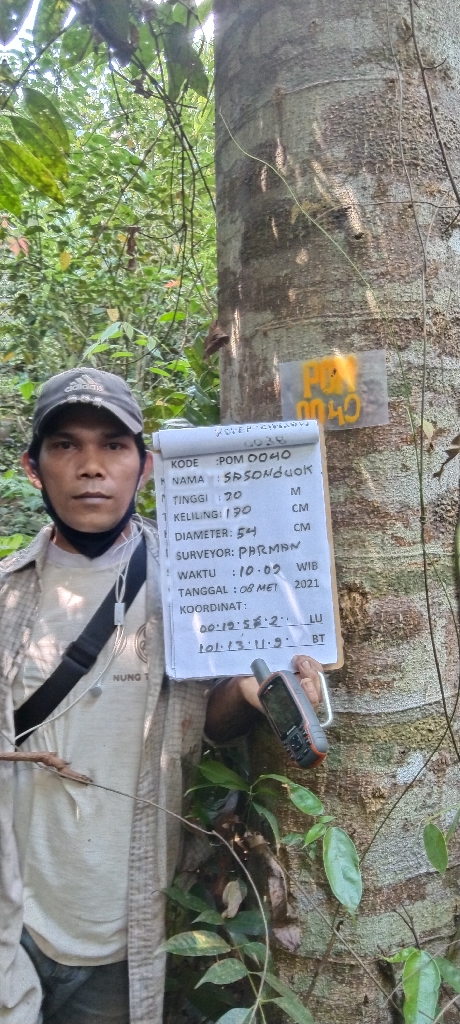 adidas
POM
0040
KODE :POM 0040
NAMA : SASONdUOK
TINGGI : 20 M
KELILING: 170 CM
DIAMETER: 54 CM
SURVEYOR: PARMAN
WAKTU : 10.09 WIB
TANGGAL : 08 MEI 2021
KOORDINAT:
00.19.57.2. LU
101.13.11.9. BT
NUNG